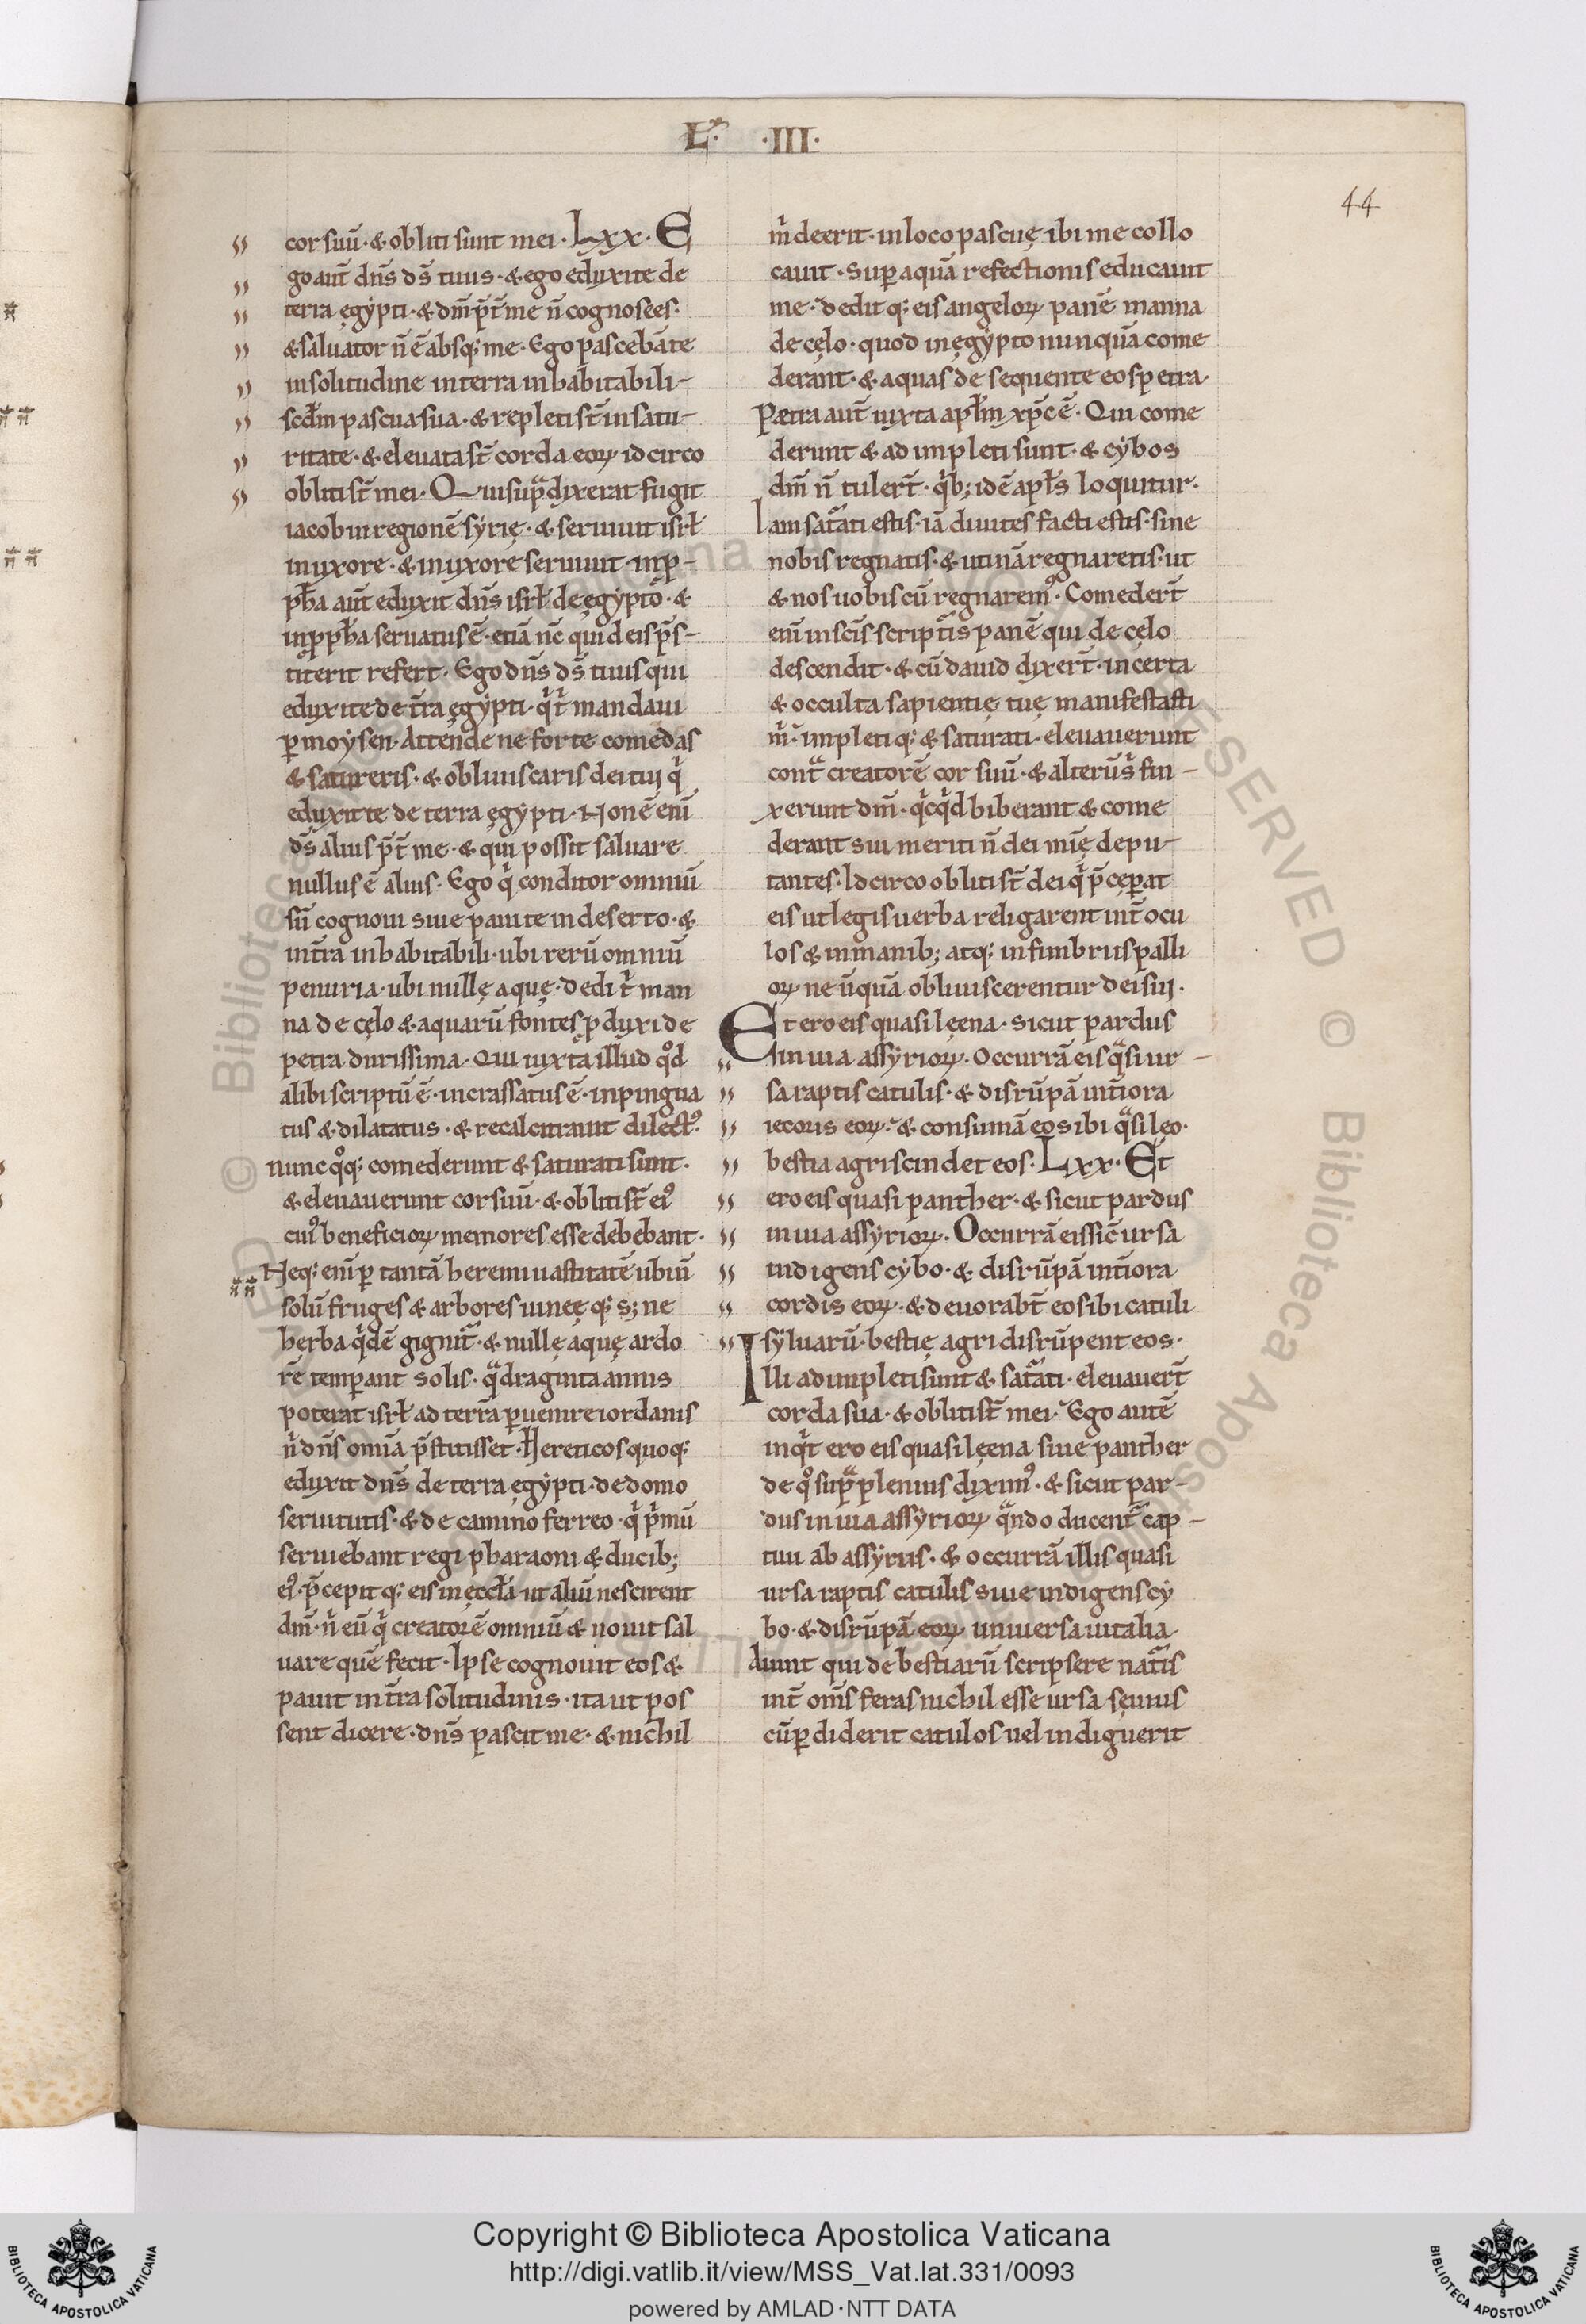 L. ·III·
44
cor suū · & obliti sunt mei · Lxx · E
go aut̄ dn̄s ds̄ tuus · & ego eduxi te de
terra ęgypti · & dm̄ p̄t̄ me n̄ cognosces ·
& saluator n̄ ē absq; me · Ego pascebā te
in solitudine in terra inhabitabili
scd̄m pascua sua · & repleti st̄ in satu-
ritate · & eleuata st̄ corda eoꝝ idcirco
obliti st̄ mei · Qui sup̃ dixerat fugit
iacob in regionē syrię · & seruiuit isrł
in uxore · & in uxore seruiuit · in ꝓ-
ph̄a aut̄ eduxit dn̄s isrł de ęgypto · &
in ꝓph̄a seruatus ē · etiā nc̄ qui d eis p̄s-
titerit refert · Ego dn̄s ds̄ tuus qui
eduxi te de t̄ra ęgypti · q̇ ṫ mandaui
ꝑ moysen · Attende ne forte comedas
& satureris · & obliuiscaris dei tui q̇
eduxit te de terra ęgypti · Non ē eni̅
ds̄ alius p̄t̄ me · & qui possit saluare
nullus ē alius · Ego q̇ conditor omniū
sū cognoui siue paui te in deserto · &
in t̄ra inhabitabili · ubi rerū omniū
penuria · ubi nullę aquę · dedi ṫ man
na de cęlo & aquarū fontes ꝓduxi de
petra durissima · Qui iuxta illud qd̊
alibi scriptū ē · incrassatus ē · inpingua
tus & dilatatus · & recalcitrauit dilect9 ·
nunc q̊q; comederunt & saturati sunt ·
& eleuauerunt cor suū · & obliti st̄ ei9
cui9 beneficioꝝ memores esse debebant ·
Neq; eni̅ ꝑ tantā heremi uastitatē ubi n̄
solū fruges & arbores uineęq; s; ne
herba q̇dē gignit̃ · & nullę aquę ardo
rē temꝑant solis · q̃draginta annis
poterat isrł ad terrā ꝑuenire iordanis
ṅ dn̄s omīa p̄stitisset · Hereticos quoq;
eduxit dn̄s de terra ęgypti · de domo
seruitutis · & de camino ferreo · q̇ ṗmū
seruiebant regi pharaoni & ducib;
ei9 · p̄cepitq; eis in ęccłia ut aliū nescirent
dm̄ · ṅ eū q̇ creatorē omniū & nouit sal
uare quē fecit · Ipse cognouit eos &
pauit in t̄ra solitudinis · ita ut pos
sent dicere · dn̄s pascit me · & nichil
ṁ deerit · in loco pascuę ibi me collo
cauit · Suꝑ aquā refectionis educauit
me · deditq; eis angeloꝝ panē manna
de cęlo · quod in ęgypto nunquā come
derant · & aquas de sequente eos petra ·
Pætra aut̄ iuxta apłm xp̄c ē · Qui come
derunt & adimpleti sunt · & cybos
dm̄ n̄ tulert̄ · q̇b; idē apłs loquitur ·
Iam sat̃ati estis · iā diuites facti estis · sine
nobis regnatis · & utinā regnaretis · ut
& nos uobiscū regnarem9 · Comedert̄
eni̅ in scīs scripťis panē qui de cęlo
descendit · & cū dauid dixert̄ · incerta
& occulta sapientię tuę manifestasti
ṁ · impletiq; & saturati · eleuauerunt
cont̃ creatorē cor suū · & alteru̅ s̈ fin-
xerunt dm̄ · q̇cq̇d biberant & come
derant sui meriti n̄ dei mīę depu-
tantes · Idcirco obliti st̄ dei q̇ p̄cęꝑat
eis ut legis uerba religarent int̄ ocu
los & in manib; atq; in fimbriis palli
oꝝ ne ūquā obliuiscerentur dei sui ·
Et ero eis quasi lęena · sicut pardus
in uia assyrioꝝ · Occurrā eis q̃si ur-
sa raptis catulis · & disrūpā int̄iora
iecoris eoꝝ · & consumā eos ibi q̃si lęo ·
bestia agri scindet eos · Lxx · Et
ero eis quasi panther · & sicut pardus
in uia assyrioꝝ · Occurrā eis sic̄ ursa
indigens cybo · & disrūpā int̄iora
cordis eoꝝ · & deuorabt̄ eos ibi catuli
syluarū · bestię agri disrūpent eos ·
Illi adimpleti sunt & sat̃ati · eleuauert̄
corda sua · & obliti st̄ mei · Ego autē
inq̇t ero eis quasi lęena siue panther
de q̊ sup̃ plenius dixim9 · & sicut par-
dus in uia assyrioꝝ q̃ndo ducent̃ cap-
tiui ab assyriis · & occurrā illis quasi
ursa raptis catulis siue indigens cy
bo · & disrūpā eoꝝ uniuersa uitalia ·
Aiunt qui de bestiarū scripsere nat̃is
int̄ oms̄ feras nichil esse ursa sęuius
cū ꝑdiderit catulos uel indiguerit
Copyright © Biblioteca Apostolica Vaticana
http://digi.vatlib.it/view/MSS_Vat.lat.331/0093
powered by AMLAD·NTT DATA
BIBLIOTECA APOSTOLICA VATICANA
BIBLIOTECA APOSTOLICA VATICANA